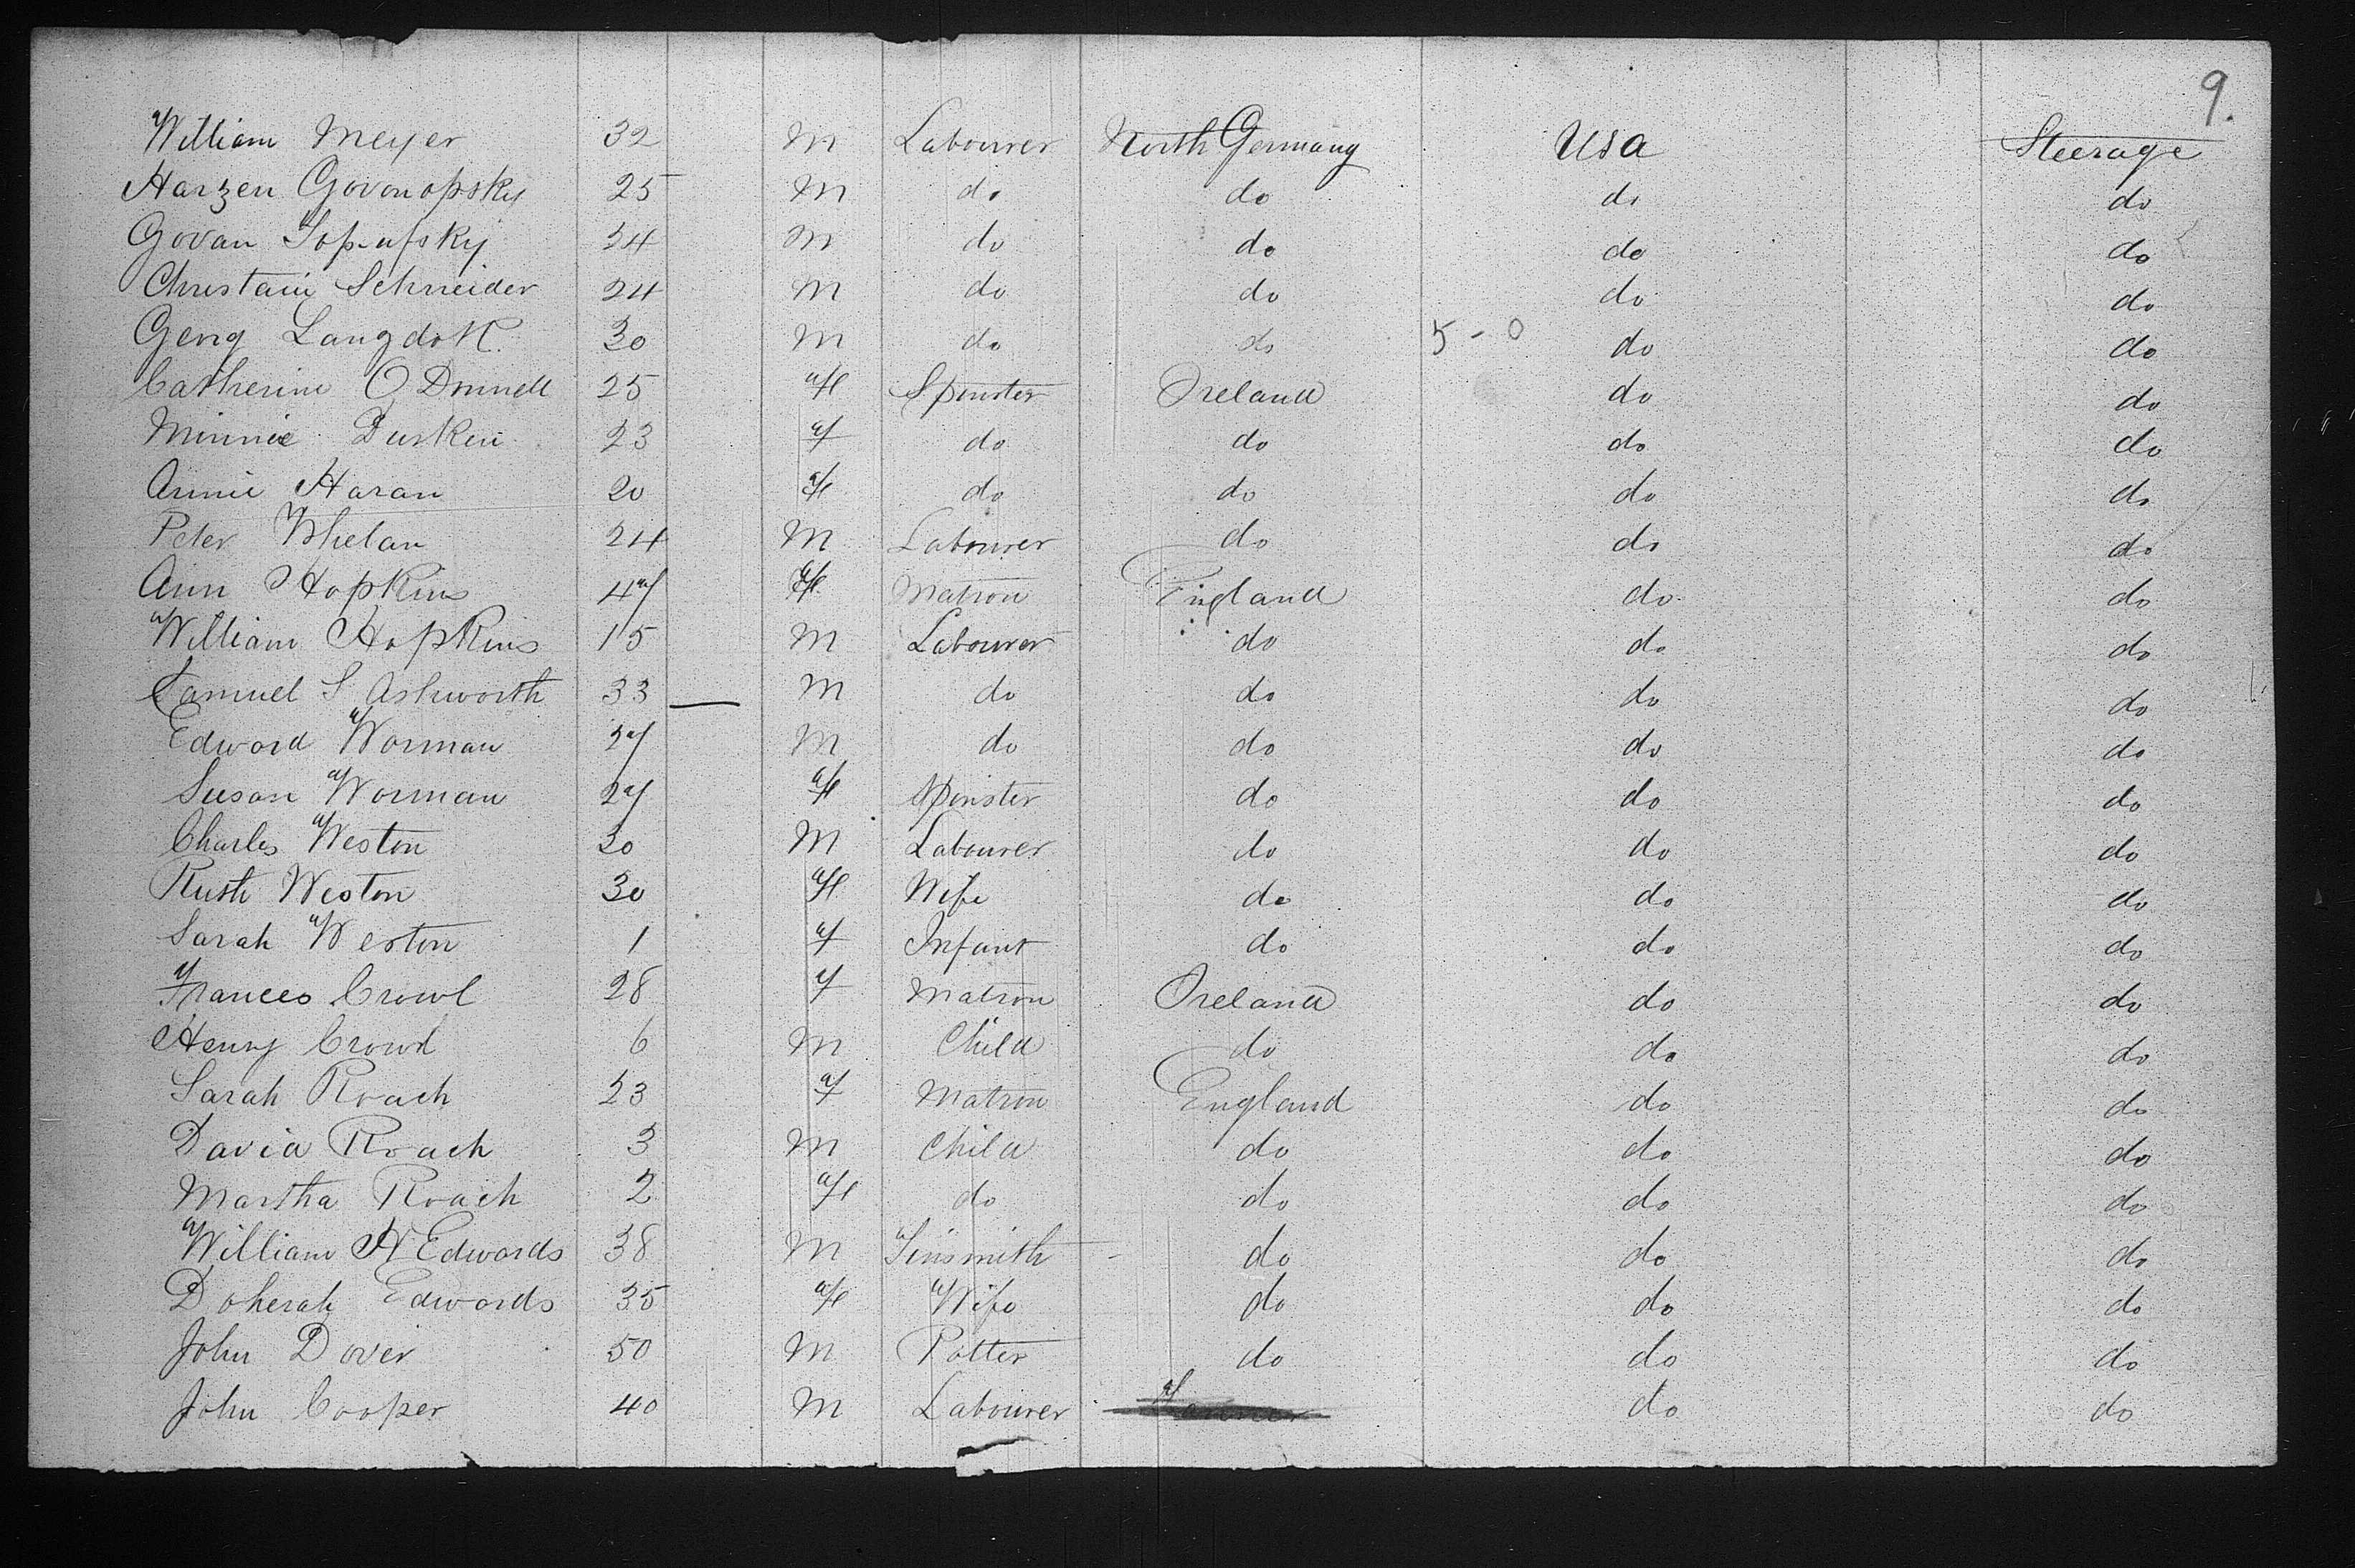 9.
William Meyer 32 M Labourer North Germany USA Steerage
Harzen Govonopsky 25 M do do do do
Govan 24 M do do do do
Christain Schneider 24 M do do do do
Georg 30 M do do 5-0 do do
Catherine O Donnell 25 F Spinster Ireland do do
Minnie Durkin 23 F do do do do
Annie Haran 20 F do do do do
Peter Whelan 24 M Labourer do do do
Ann Hopkins 47 F Matron England do do
William Hopkins 15 M Labourer do do do
Samuel S Ashworth 33 — M do do do do
Edward Worman 27 M do do do do
Susan Worman 27 F Spinster do do do
Charles Weston 30 M Labourer do do do
Ruth Weston 30 F Wife do do do
Sarah Weston 1 F Infant do do do
Frances Crowl 28 F Matron Ireland do do
Henry Crowl 6 M Child do do do
Sarah Roach 23 F Matron England do do
David Roach 3 M Child do do do
Martha Roach 2 F do do do do
William H Edwards 38 M Tinsmith do do do
Doherah Edwards 35 F Wife do do do
John Dover 50 M Potter do do do
John Cooper 40 M Labourer do do